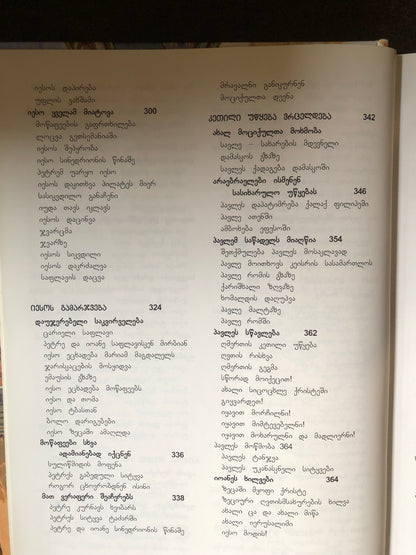 იესოს დაპირება
უფლის ვახშამი
იესო ყველამ მიატოვა 300
მოწაფეების გაფრთხილება
ლოცვა გეთსემანიაში
იესოს შეპყრობა
იესო სინედრიონის წინაშე
პეტრემ უარყო იესო
იესოს დაკითხვა პილატეს მიერ
სასიკვდილო განაჩენი
იუდა თავს იკლავს
იესოს დაცინვა
ჯვარცმა
ჯვარზე
იესოს სიკვდილი
იესოს დაკრძალვა
საფლავის დაცვა
იესოს გამარჯვება 324
დაუჯერებელი საკვირველება
ცარიელი საფლავი
პეტრე და იოანე საფლავისკენ მირბიან
იესო ეცხადება მარიამ მაგდალელს
ჯარისკაცების მოსყიდვა
ემაუსის გზაზე
იესო ეცხადება მოწაფეებს
იესო და თომა
იესო ტბასთან
ბოლო დარიგებები
იესო ზეცაში ამაღლდა
მოწაფეები სხვა
ადამიანებად იქცნენ 336
სულიწმიდის მოფენა
პეტრეს გაბედული სიტყვა
როგორ ცხოვრობდნენ ისინი
მათ ვერაფერი შეაჩერებს 338
პეტრე კურნავს ხეიბარს
პეტრეს სიტყვა ტაძარში
პეტრე და იოანე სინედრიონის წინაშე
მრავალნი განიკურნენ
მოციქულთა დევნა
კეთილი უწყება ვრცელდება 342
ახალ მოციქულთა მოხმობა
სავლე – სახარების მდევნელი
დამასკოს გზაზე
სავლეს ქადაგება დამასკოში
არაებრაელები ისმენენ
სასიხარულო უწყებას 346
პავლეს დაპატიმრება ქალაქ ფილიპეში
პავლე ათენში
ამბოხება ეფესოში
პავლემ საწადელს მიაღწია 354
შეთქმულება პავლეს მოსაკლავად
პავლე მოითხოვს კეისრის სასამართლოს
პავლე რომის გზაზე
ქარიშხალი ზღვაზე
ხომალდის დაღუპვა
პავლე მალტაზე
პავლე რომში
პავლეს სწავლება 362
ღმერთის კეთილი უწყება
ღვთის რისხვა
ღმერთის გეგმა
სწორად მოიქეცით!
ახალი სიცოცხლე ქრისტეში
გიყვარდეთ!
იყავით მორჩილნი!
იყავით მიმტევებელნი!
იყავით მოხარულნი და მადლიერნი!
პავლეს მოწმობა 364
პავლეს ტანჯვა
პავლეს უკანასკნელი სიტყვები
იოანეს ხილვები 364
ზეცაში მყოფი ქრისტე
ზეციური ღვთისმსახურების ხილვა
ახალი ცა და ახალი მიწა
ახალი იერუსალიმი
იესო მოდის!